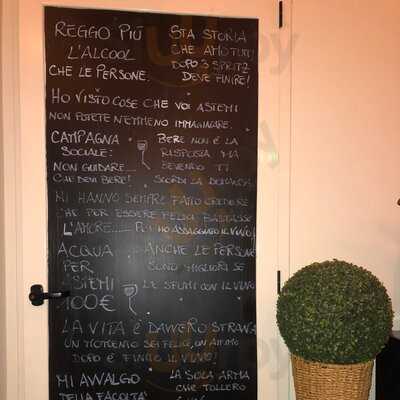 REGGO PIÙ
L'ALCOOL
CHE LE PERSONE.
STA STORIA
CHE AMO TUTTI
DOPO 3 SPRITZ
DEVE FINIRE!
HO VISTO COSE CHE VOI ASTEMI
NON POTETE NEMMENO IMMAGINARE.
CAMPAGNA
SOCIALE:
NON GUIDARE....
CHE DEVI BERE!
BERE NON È LA
RISPOSTA, MA
BEVENDO TI
SCORDI LA DOMANDA
MI HANNO SEMPRE FATTO CREDERE
CHE PER ESSERE FELICI BASTASSE
L'AMORE...... POI HO ASSAGGIATO IL VINO!
ACQUA
PER
ASTEMI
100€
ANCHE LE PERSONE
SONO MIGLIORI SE
LE SFUMI CON IL VINO
LA VITA È DAVVERO STRANA
UN MOMENTO SEI FELICE, UN ATTIMO
DOPO È FINITO IL VINO!
MI AVVALGO
DELLA FACOLTÀ
LA SOLA ARMA
CHE TOLLERO